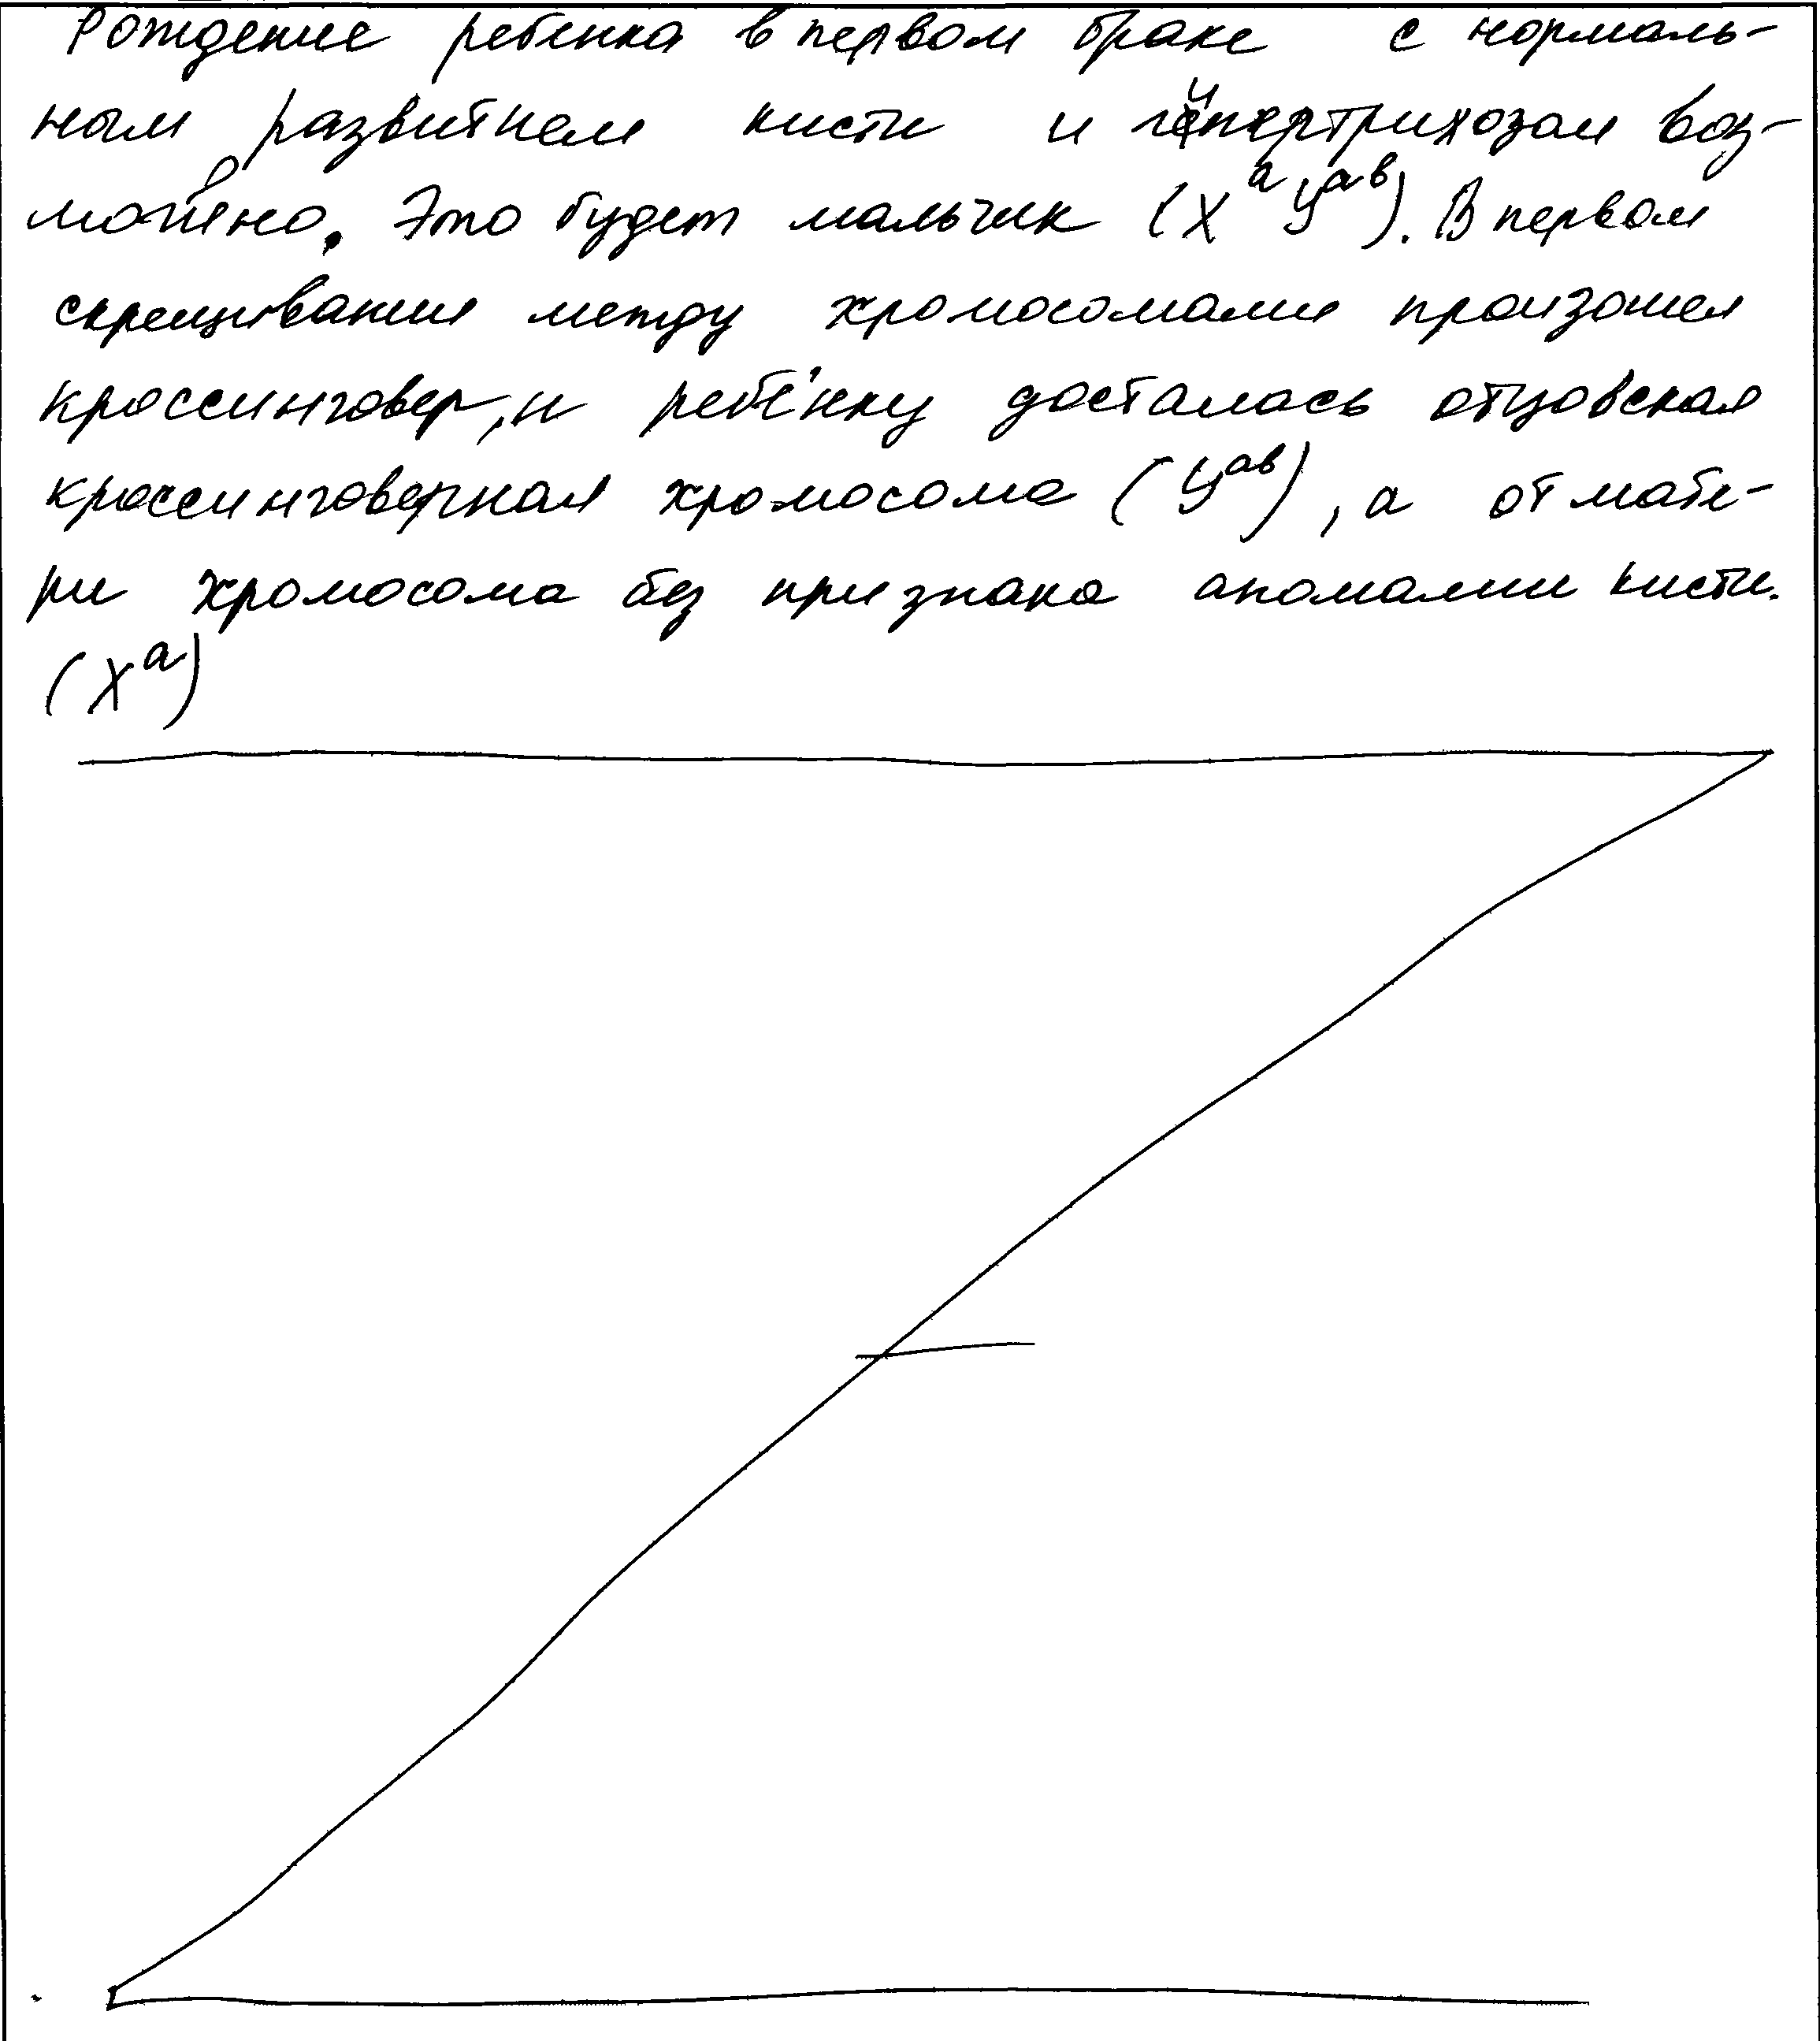 Рождение ребенка в первом браке с нормаль-
ным развитием кисти и гипертрихозом воз-
можно. Это будет мальчик (Xᵃ Yᵃᵇ). В первом
скрещивании между хромосомами произошел
кроссинговер, и ребёнку досталась отцовская
кроссинговерная хромосома (Yᵃᵇ), а от мате-
ри хромосома без признака аномалии кисти.
(Xᵃ)